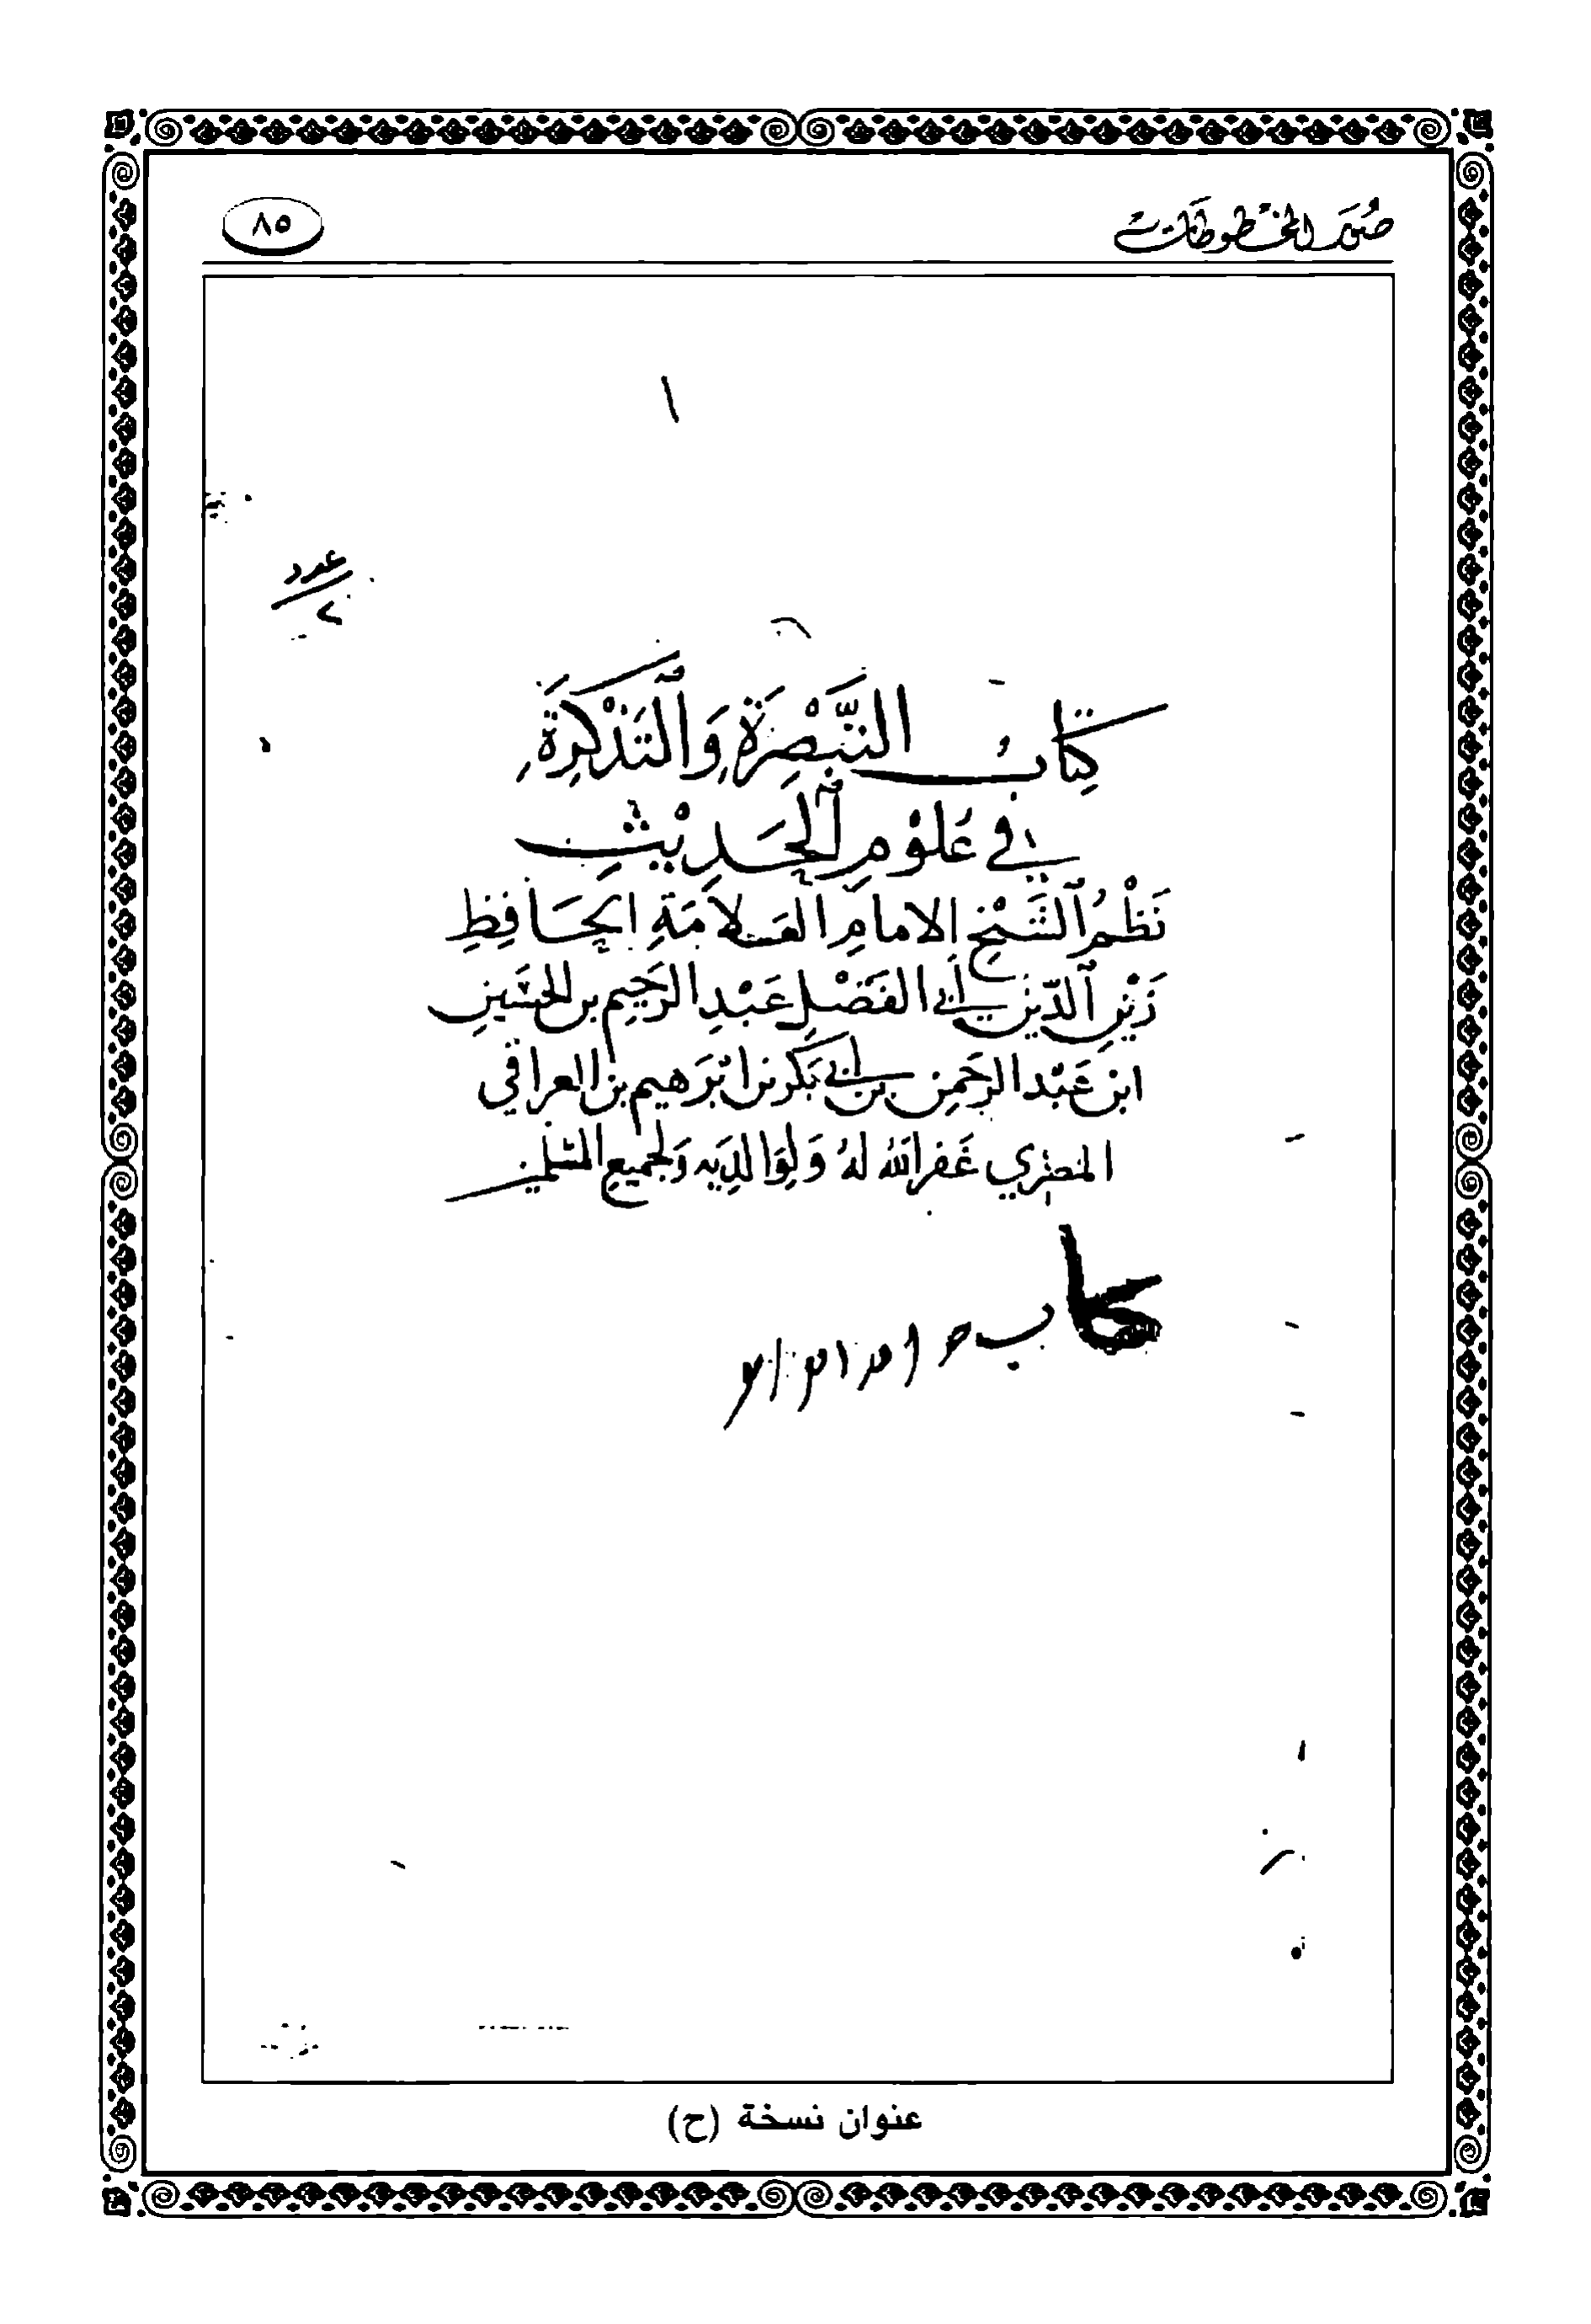 صور المخطوطات
٨٥
١
عدد
٢
كِتَابُ التَّبْصِرَةِ وَالتَّذْكِرَةِ
في عُلُوْمِ الحَدِيْثِ
نَظْمُ الشَّيْخِ الامامِ العَلامَةِ الحَافِظِ
زَيْنِ الدِّيْنِ أَبي الفَضْلِ عَبْدِ الرَّحِيمِ بن الحُسَيْنِ
ابن عَبْد الرَّحمن بن أَبي بَكر بن ابْرَهيم بن العراقي
المصْرِي غَفَر اللهُ لهُ وَلِوَالِدَيه وَلجَميعِ المُسْلمين
كتاب
عنوان نسخة (ح)